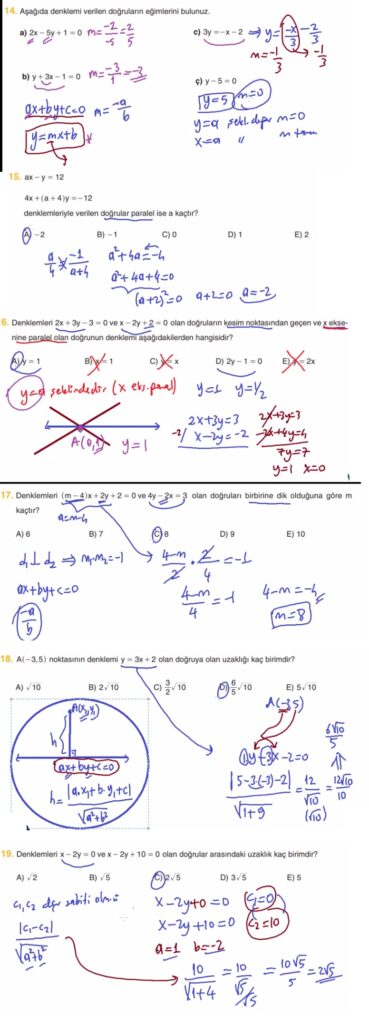 14. Aşağıda denklemi verilen doğruların eğimlerini bulunuz.
a) 2x - 5y + 1 = 0 m = -2/-5 = 2/5
c) 3y = -x - 2 ⇒ y = -x/3 - 2/3
m = -1/3 -1/3
b) y + 3x - 1 = 0 m = -3/1 = -3
ç) y - 5 = 0
ax+by+c=0 m = -a/b
y=5 m=0
y=mx+b
y=a şekl. m=0
x=a " m
15. ax - y = 12
4x + (a + 4)y = -12
denklemleriyle verilen doğrular paralel ise a kaçtır?
A) -2 B) -1 C) 0 D) 1 E) 2
a/4 = -1/a+4 a²+4a=-4
a²+4a+4=0
(a+2)²=0 a+2=0 a=-2
6. Denklemleri 2x + 3y - 3 = 0 ve x - 2y + 2 = 0 olan doğruların kesim noktasından geçen ve x ekse-
nine paralel olan doğrunun denklemi aşağıdakilerden hangisidir?
A) y = 1 B) = 1 C) = x D) 2y - 1 = 0 E) = 2x
y=a şeklindedir (x eks. paral) y=1 y=1/2
2x+3y=3 2x+3y=3
-2/ x-2y=-2 -2x+4y=4
A(0,1) y=1
7y=7
y=1 x=0
17. Denklemleri (m - 4)x + 2y + 2 = 0 ve 4y - 2x = 3 olan doğruları birbirine dik olduğuna göre m
kaçtır?
a=m-4
A) 6 B) 7 C) 8 D) 9 E) 10
d₁⊥d₂ ⇒ m₁.m₂=-1 4-m/2 . 2/4 = -1
ax+by+c=0
-a/b
4-m/4 = -1 4-m=-4
m=8
18. A(-3,5) noktasının denklemi y = 3x + 2 olan doğruya olan uzaklığı kaç birimdir?
A) √10 B) 2√10 C) 3/2 √10 D) 6/5 √10 E) 5√10
A(x₁,y₁)
A(-3,5)
h
6√10/5
1y-3x-2=0
ax+by+c=0
|5-3.(-3)-2|/√1+9 = 12/√10 = 12√10/10
(√10)
h = |a.x₁+b.y₁+c|/√a²+b²
19. Denklemleri x - 2y = 0 ve x - 2y + 10 = 0 olan doğrular arasındaki uzaklık kaç birimdir?
A) √2 B) √5 C) 2√5 D) 3√5 E) 5
c₁,c₂ x-2y+0=0 c₁=0
|c₁-c₂|/√a²+b² x-2y+10=0 c₂=10
a=1 b=-2
10/√1+4 = 10/√5 = 10√5/5 = 2√5
√5